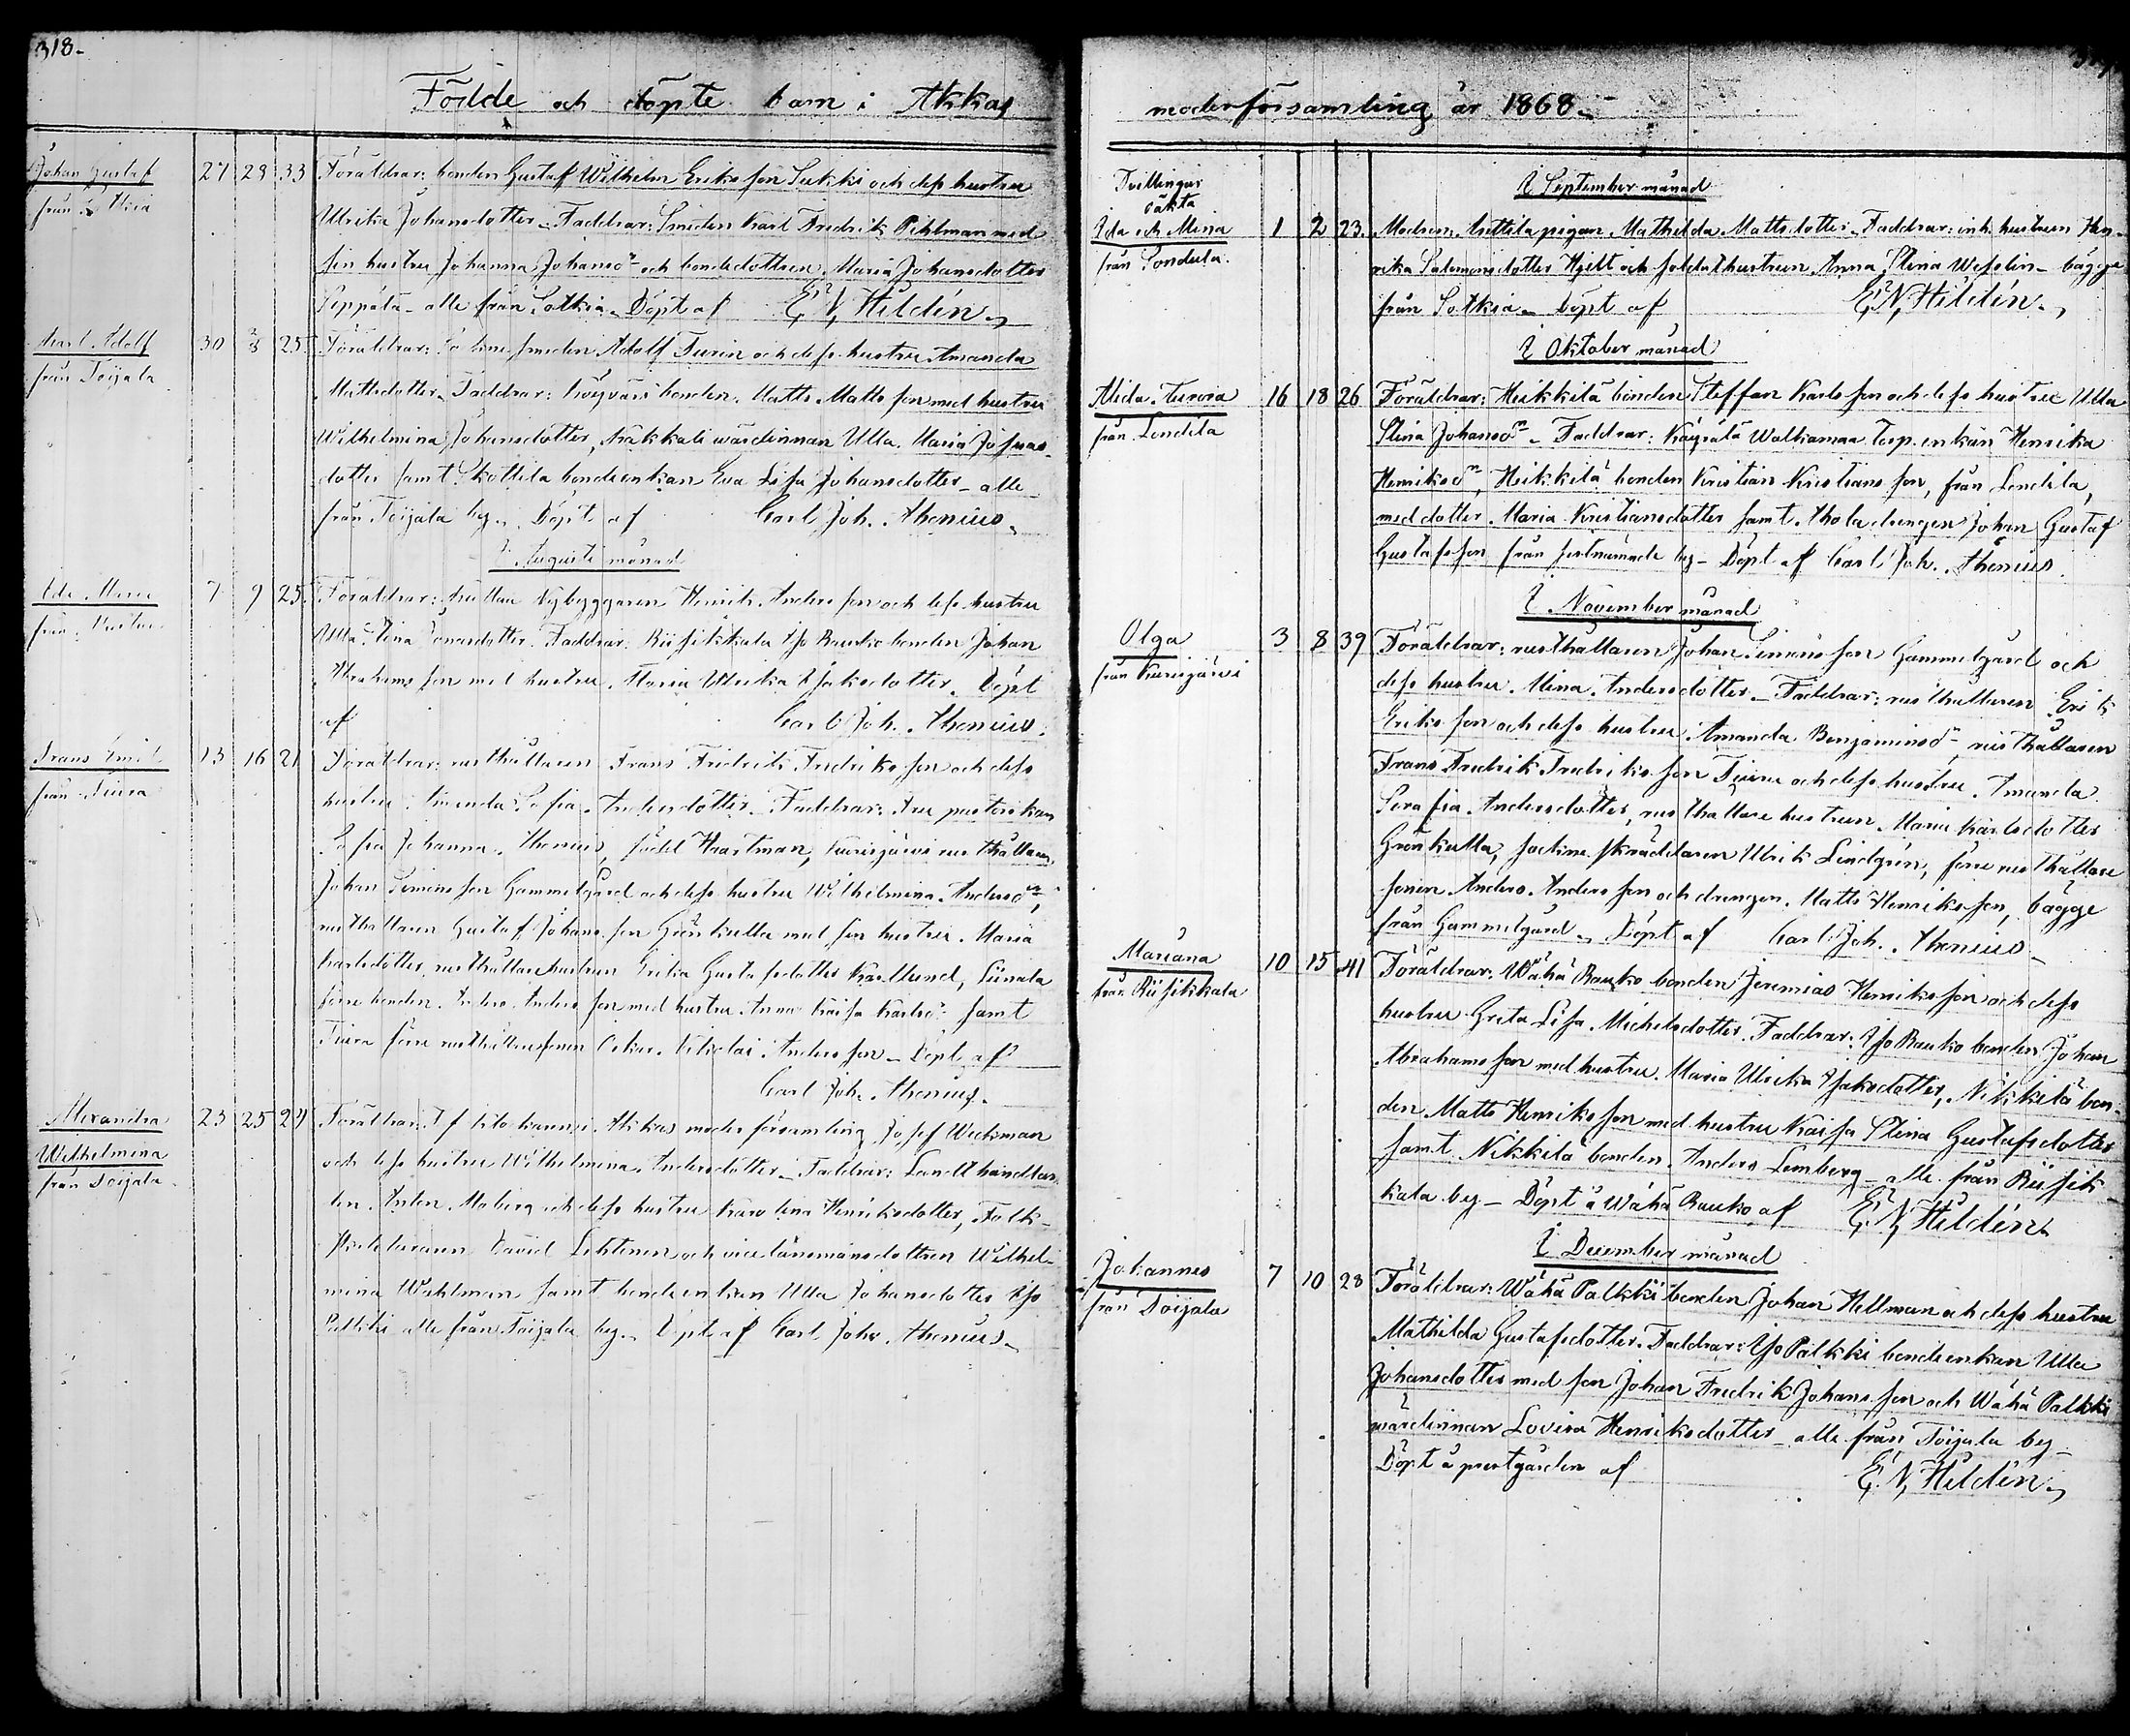 318.
Födde och döpte barn i Akkas
Johan Gustaf
från Sotkia
27 28 33 Föräldrar: bonden Gustaf Wilhelm Eriksson Sukki och dess hustru
Ulrika Johansdotter. Faddrar: Smeden Karl Fredrik Pihlman med
sin hustru Johanna Johansdr och bondedottren Maria Johansdotter
Seppälä - alle från Sotkia. Döpt af E. N. Hildén.
Karl Adolf
från Toijala
30 2/8 25 Föräldrar: smeden Adolf Turin och dess hustru Amanda
Mattsdotter. Faddrar: bonden Matts Mattsson med hustru
Wilhelmina Johansdotter, wärdinnan Ulla Maria Josuas-
dotter samt Skottila bondeenkan Eva Lisa Johansdotter - alle
från Toijala by. Döpt af Carl Joh. Thenius.
I Augusti månad
Ida Maria
från
7 9 25 Föräldrar: Nybyggaren Henrik Andersson och dess hustru
Ulla Stina dotter. Faddrar: Riisikkala Iso Rauko bonden Johan
Abrahamsson med hustru Maria Ulrika Isaksdotter. Döpt
af Carl Joh. Thenius.
Frans Emil
från Tiura
13 16 21 Föräldrar: rusthållaren Frans Fredrik Fredriksson och dess
hustru Amanda Serafia Andersdotter. Faddrar: Fru pastorskan
Sofia Johanna Thenius, född Haartman, Kurisjärvi rusthållaren
Johan Simonsson Gammelgård och dess hustru Wilhelmina Andersdr,
rusthållaren Gustaf Johansson Grönkulla med sin hustru Maria
Karlsdotter, rusthållarehustrun Erika Gustafsdotter Karlslund,
förre bonden Anders Andersson med hustru Anna Kaisa Karlsdr samt
Tiura förre rusthållaresonen Oskar Nikolai Andersson - Döpt af
Carl Joh. Thenius.
Alexandra
Wilhelmina
från Toijala
23 25 24 Föräldrar: i Akkas moderförsamling Josef Weckman
och dess hustru Wilhelmina Andersdotter. Faddrar: Landthandlan-
den Anton Moberg och dess hustru Karolina Henriksdotter, Folk-
skoleläraren David Lehtonen och vice länsmansdottren Wilhel-
mina Wahlman samt bondeenkan Ulla Johansdotter Iso
Pälkki alle från Toijala by. Döpt af Carl Joh. Thenius.
moderförsamling år 1868.
I September månad
Tvillingar
oäkta
Ida och Mina
från Sondula.
1 2 23. Modren: Anttila pigan Mathilda Mattsdotter. Faddrar: inh. hustrun Hen-
rika Salomonsdotter Hjelt och soldathustrun Anna Stina Wesslin - bägge
från Sotkia. Döpt af E. N. Hildén.
I Oktober månad
Alida Aurora
från Lendila
16 18 26 Föräldrar: Heikkilä bonden Steffan Karlsson och dess hustru Ulla
Stina Johansdr. Faddrar: Walkamaa torp. enkan Henrika
Henriksdr, Heikkilä bonden Kristian Kristiansson, från Lendila,
med dotter Maria Kristiansdotter samt Ahola drengen Johan Gustaf
Gustafsson från förstnämnde by - Döpt af Carl Joh. Thenius.
I November månad
Olga
från Kurisjärvi
3 8 39 Föräldrar: rusthållaren Johan Simonsson Gammelgård och
dess hustru Mina Andersdotter. Faddrar: rusthållaren Erik
Eriksson och dess hustru Amanda Benjaminsdr, rusthållaren
Frans Fredrik Fredriksson Tiura och dess hustru Amanda
Serafia Andersdotter, rusthållare hustrun Maria Karlsdotter
Grönkulla, sockne skräddaren Ulrik Lindgrén, förre rusthållare
sonen Anders Andersson och drengen Matts Henriksson, bägge
från Gammelgård. Döpt af Carl Joh. Thenius.
Mariana
från Riisikkala
10 15 41 Föräldrar: Wähä Rauko bonden Jeremias Henriksson och dess
hustru Greta Lisa Michelsdotter. Faddrar: Iso Rauko bonden Johan
Abrahamsson med hustru Maria Ulrika Isaksdotter, Nikkilä bon-
den Matts Henriksson med hustru Kaisa Stina Gustafsdotter
samt Nikkilä bonden Anders Lemberg - alle från Riisik-
kala by - Döpt å Wähä Rauko af E. N. Hildén.
I December månad
Johannes
från Toijala
7 10 28 Föräldrar: Wähä Pälkki bonden Johan Hellman och dess hustru
Mathilda Gustafsdotter. Faddrar: Iso Pälkki bondeenkan Ulla
Johansdotter med son Johan Fredrik Johansson och Wähä Pälkki
wärdinnan Lovisa Henriksdotter - alle från Toijala by -
Döpt å prestgården af E. N. Hildén.